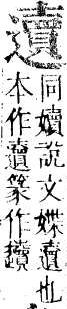 遺
同嬻說文媟遺也
本作𧷏篆作𧷏